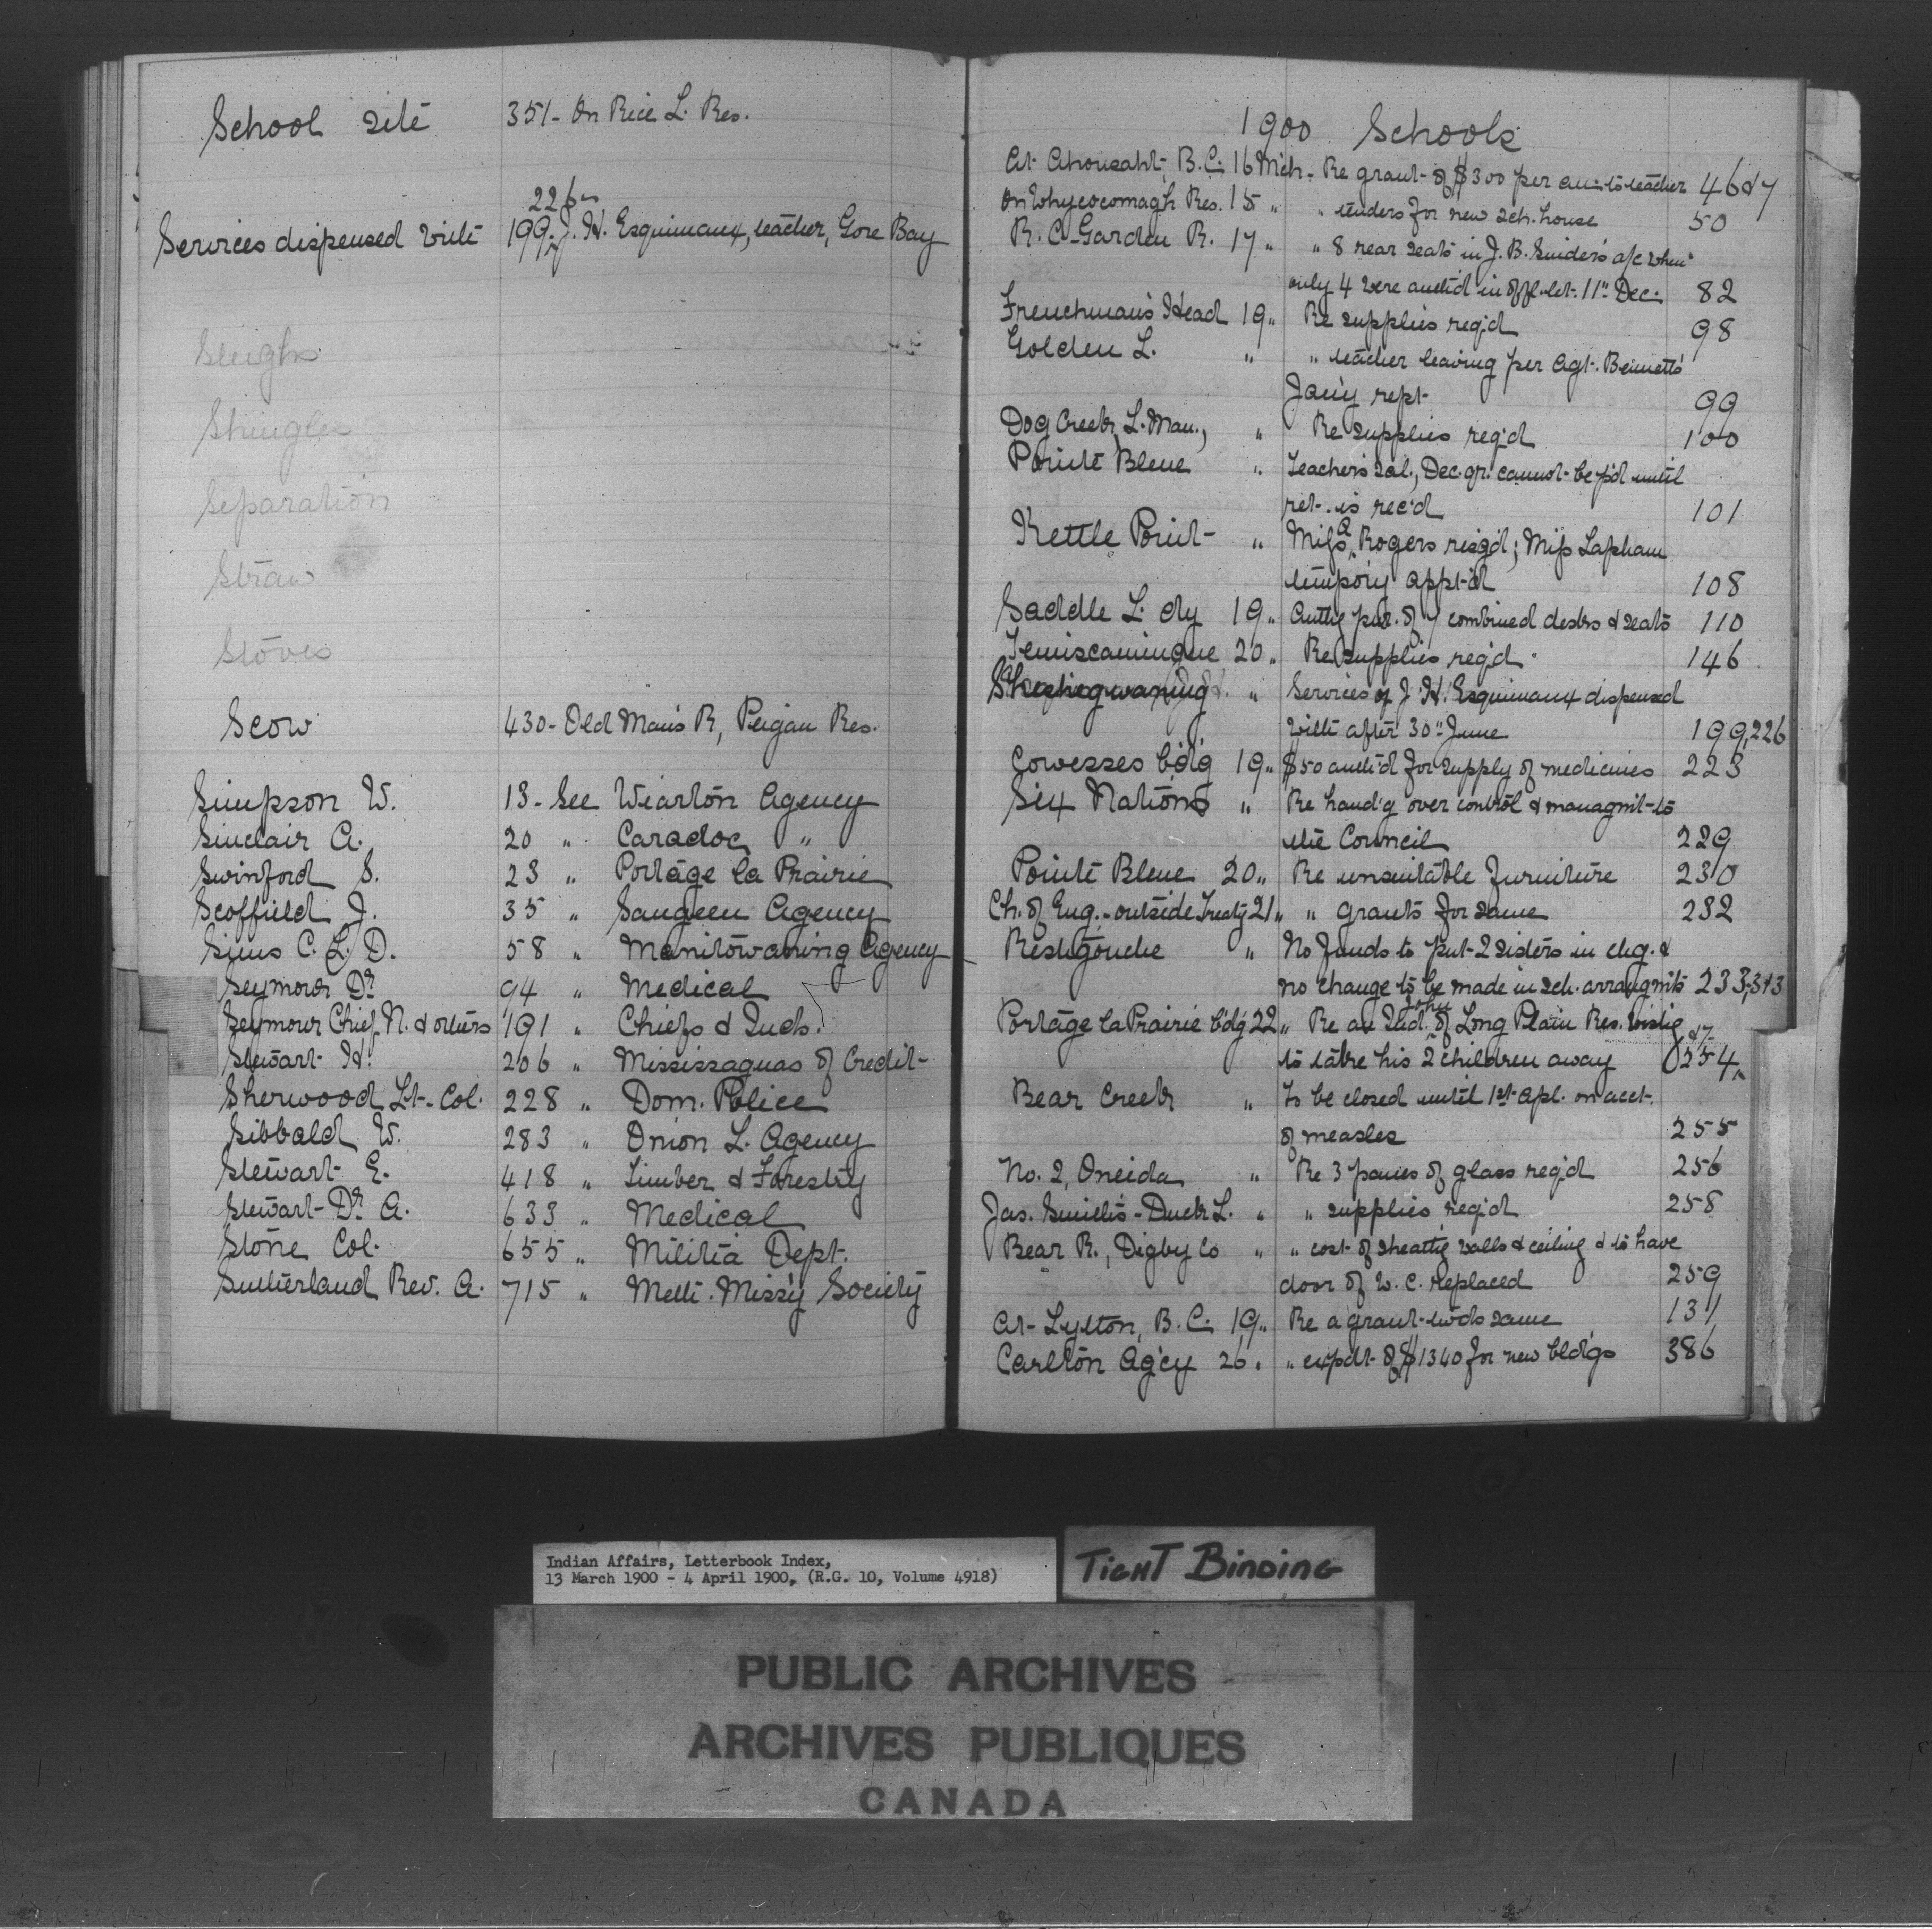 School site 351- On Rice L. Res.
226-
Services dispensed with 199- J. H. Esquimaux, teacher, Gore Bay
Sleighs
Shingles
Separation
Straw
Stoves
Scow 430- Old Man's R, Peigan Res.
Simpson W. 13- See Wiarton Agency
Sinclair A. 20 " Caradoc "
Swinford S. 23 " Portage la Prairie
Scoffield J. 35 " Saugeen Agency
Sims C. L. D. 58 " Manitowaning Agency
Seymour Dr 94 " Medical
Seymour Chief N. & others 191 " Chiefs & Inds.
Stewart H. 206 " Mississaguas of Credit
Sherwood Lt-Col. 228 " Dom. Police
Sibbald W. 283 " Onion L. Agency
Stewart E. 418 " Timber & Forestry
Stewart Dr A. 633 " Medical
Stone Col. 655 " Militia Dept.
Sutherland Rev. A. 715 " Meth. Miss'y Society
1900 Schools
At Ahousaht, B.C. 16 Mch- Re grant of $300 per an: to teacher 46&7
On Whycocomagh Res. 15 " " tenders for new sch. house 50
R. C. Garden R. 17 " " 8 rear seats in J. B. Snider's a/c when
only 4 were auth'd in offl. let. 11" Dec. 82
Frenchman's Head 19 " Re supplies req'd 98
Golden L. " " teacher leaving per Agt. Bennett's
Jan'y rept. 99
Dog Creek, L. Man., " Re supplies req'd 100
Pointe Bleue " Teacher's sal., Dec. qr. cannot be p'd until
ret. is rec'd 101
Kettle Point " Miss A. Rogers resg'd; Miss Lapham
tempor'y appt'd 108
Saddle L. dy 19 " Auth'g pur. of 7 combined desks & seats 110
Temiscamingue 20 " Re supplies req'd 146
Sheshegwaning " Services of J. H. Esquimaux dispensed
with after 30" June 199,226
Cowesses b'd'g 19 " $50 auth'd for supply of medicines 223
Six Nations " Re hand'g over control & managm't to
the Council 229
Pointe Bleue 20 " Re unsuitable furniture 230
Ch. of Eng. - outside Treaty 21 " " grants for same 232
Restigouche " No funds to put 2 sisters in chg. &
no change to be made in sch. arrangm'ts 233,313
Portage la Prairie b'd'g 22 " Re an Ind. John of Long Plain Res. wish'g
to take his 2 children away 254, &7
Bear Creek " To be closed until 1st Apl. on acct.
of measles 255
No. 2, Oneida " Re 3 panes of glass req'd 256
Jas. Smith's - Duck L. " " supplies req'd 258
Bear R., Digby Co " " cost of sheath'g walls & ceiling & to have
door of W. C. replaced 259
At Lytton, B.C. 19 " Re a grant tw'ds same 131
Carlton Ag'cy 26 " " expdt. of $1340 for new bldgs 386
Indian Affairs, Letterbook Index,
13 March 1900 - 4 April 1900, (R.G. 10, Volume 4918)
TIGHT BINDING
PUBLIC ARCHIVES
ARCHIVES PUBLIQUES
CANADA